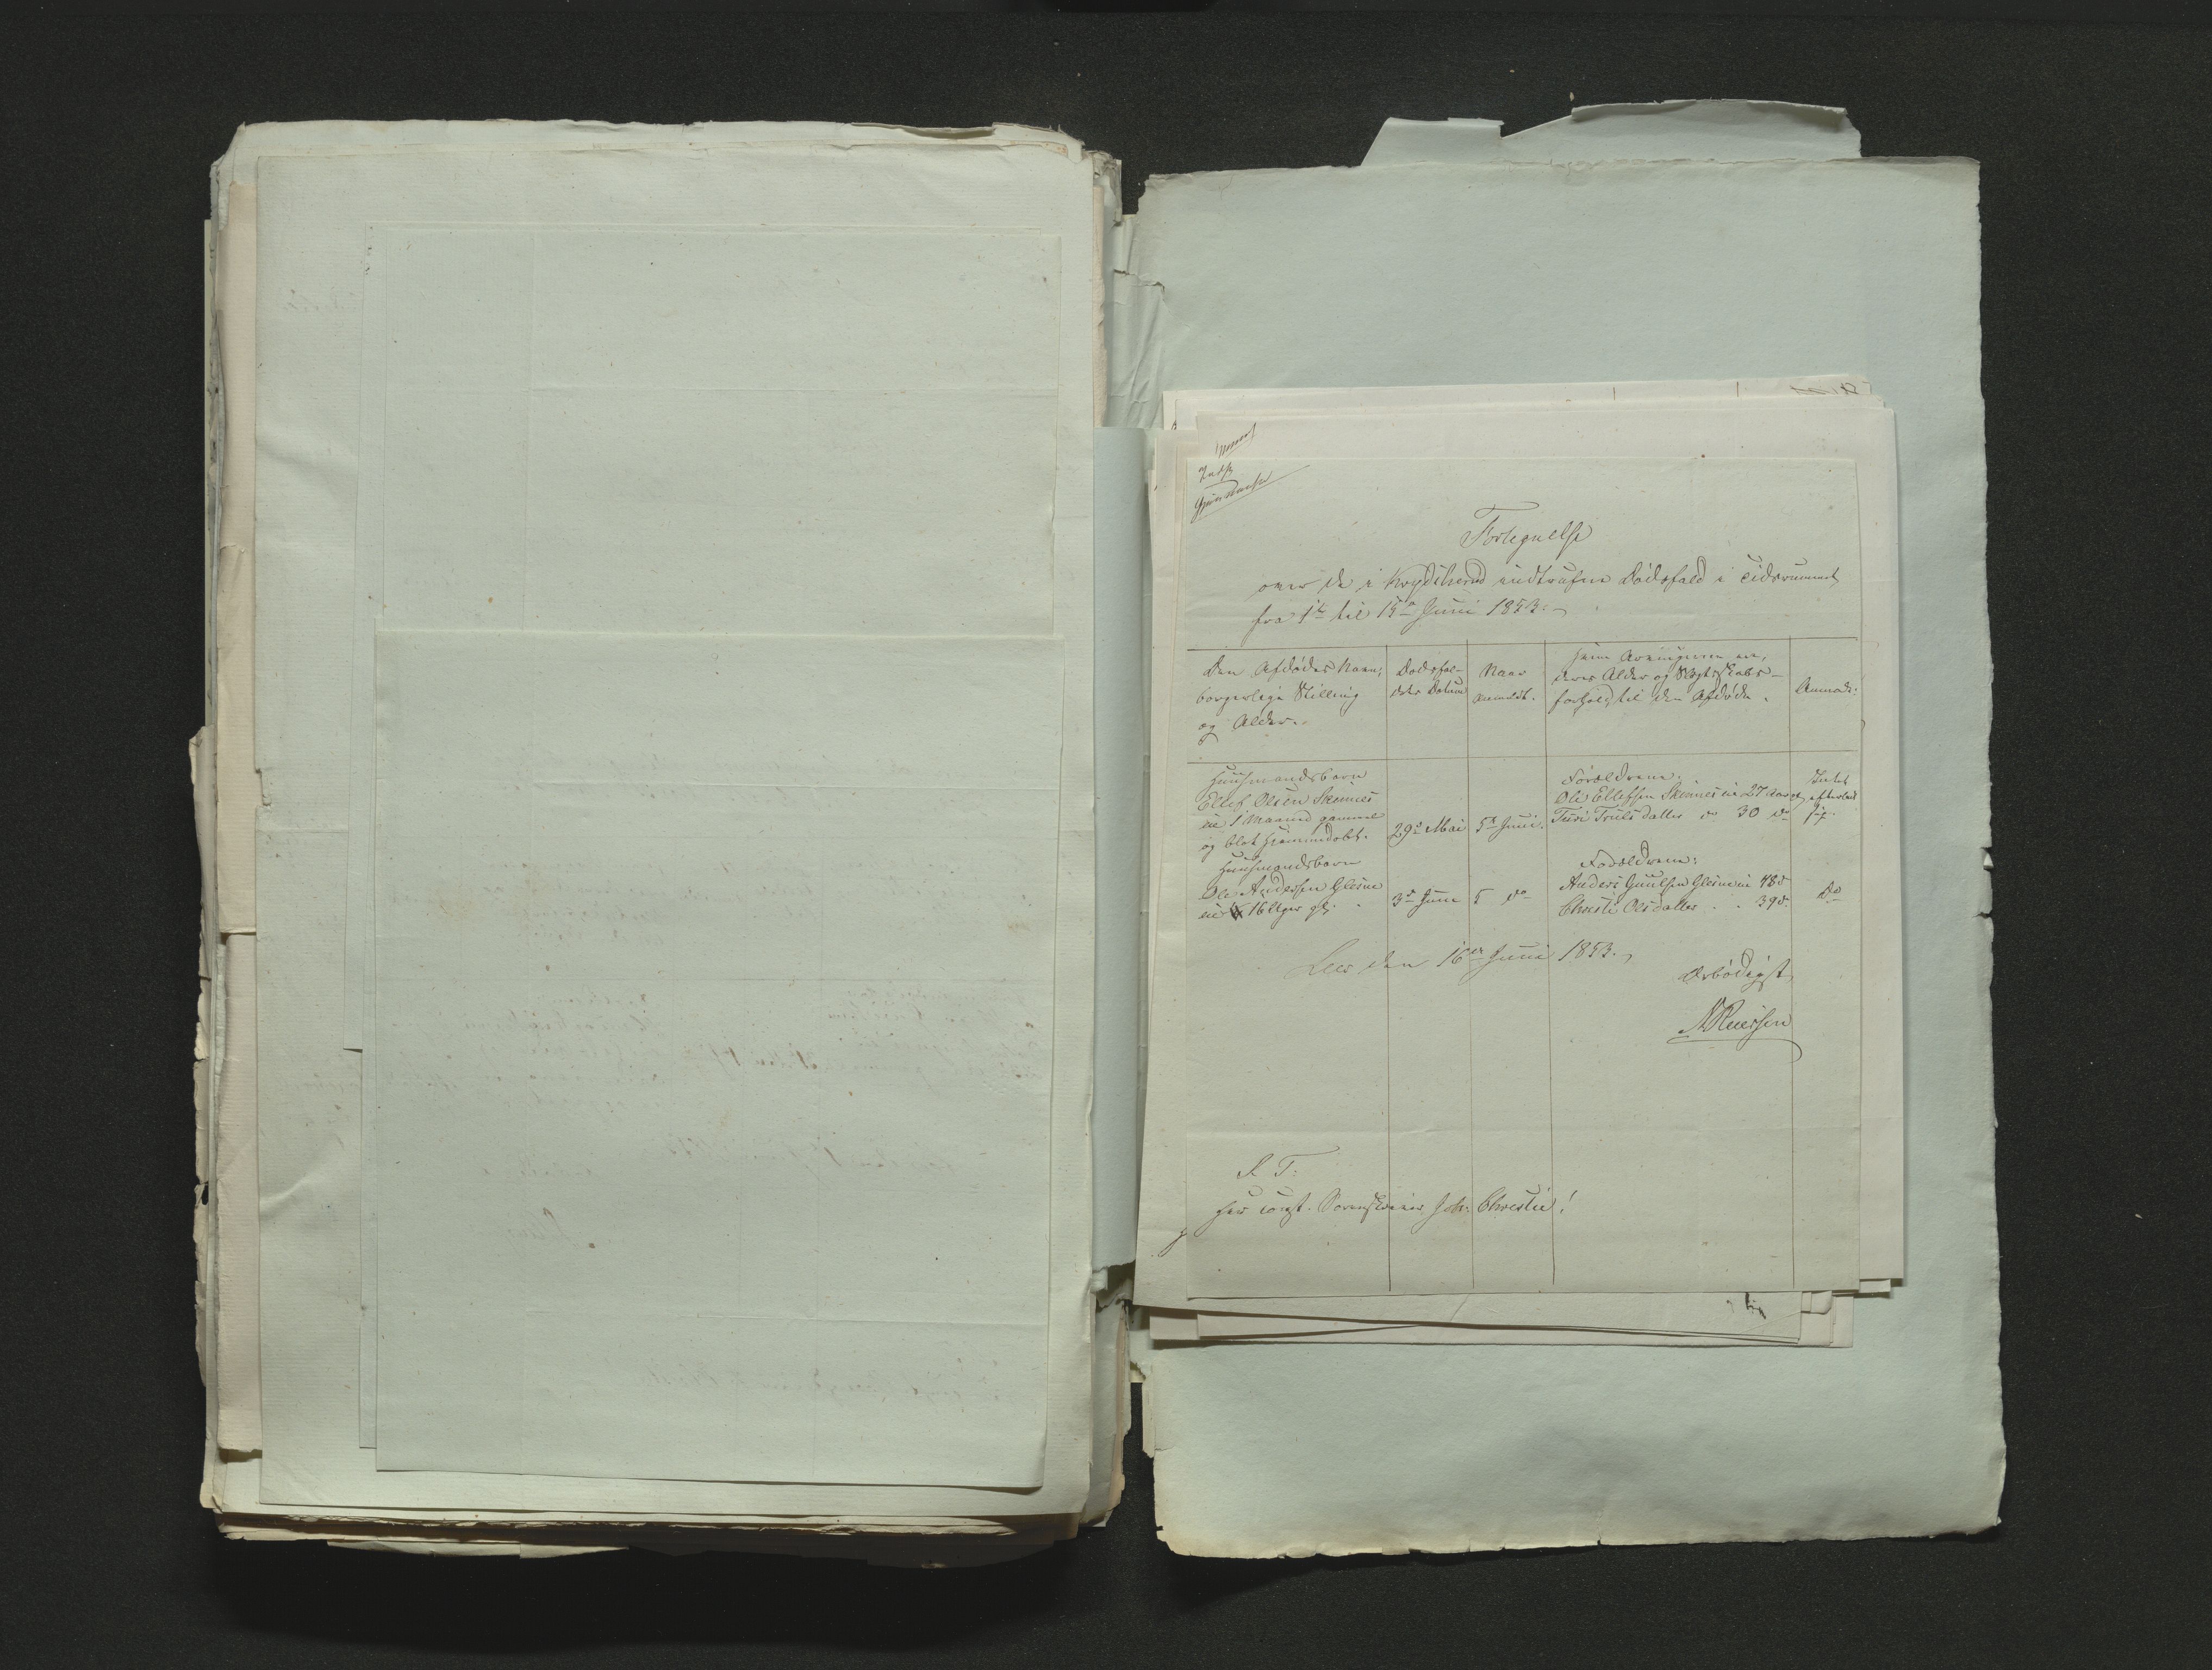 Fortegnelse
over de i Krydsherred indtrufne Dødsfald i Tidsrummet
fra 1te til 15de Juni 1853.
Den Afdødes Navn,
borgerlige Stilling
og Alder.
Dødsfal-
dets Datum
Naar
anmeldt.
Hvem Arvingerne ere,
deres Alder og Slegtskabs-
forhold til den Afdøde.
Anmærk:
Huusmandsbarn
Ellef Olsen Skinnes
1 Maaned gammel
og blot hjemmedøbt.
29de Mai
5te Juni.
Forældrene:
Ole Ellefsen Skinnes 27 Aar og
Turi Trulsdatter 30 do
Intet
efterladt
sig.
Huusmandsbarn
Ole Andersen Glesne
16 Uger gl.
3de Juni
5 do
Forældrene:
Anders Guulsen Glesne 48
Christi Olsdatter 39
Do
Lees den 16de Juni 1853.
Ærbødigst
S. T.
Herr const. Sorenskriver Joh: Christie!